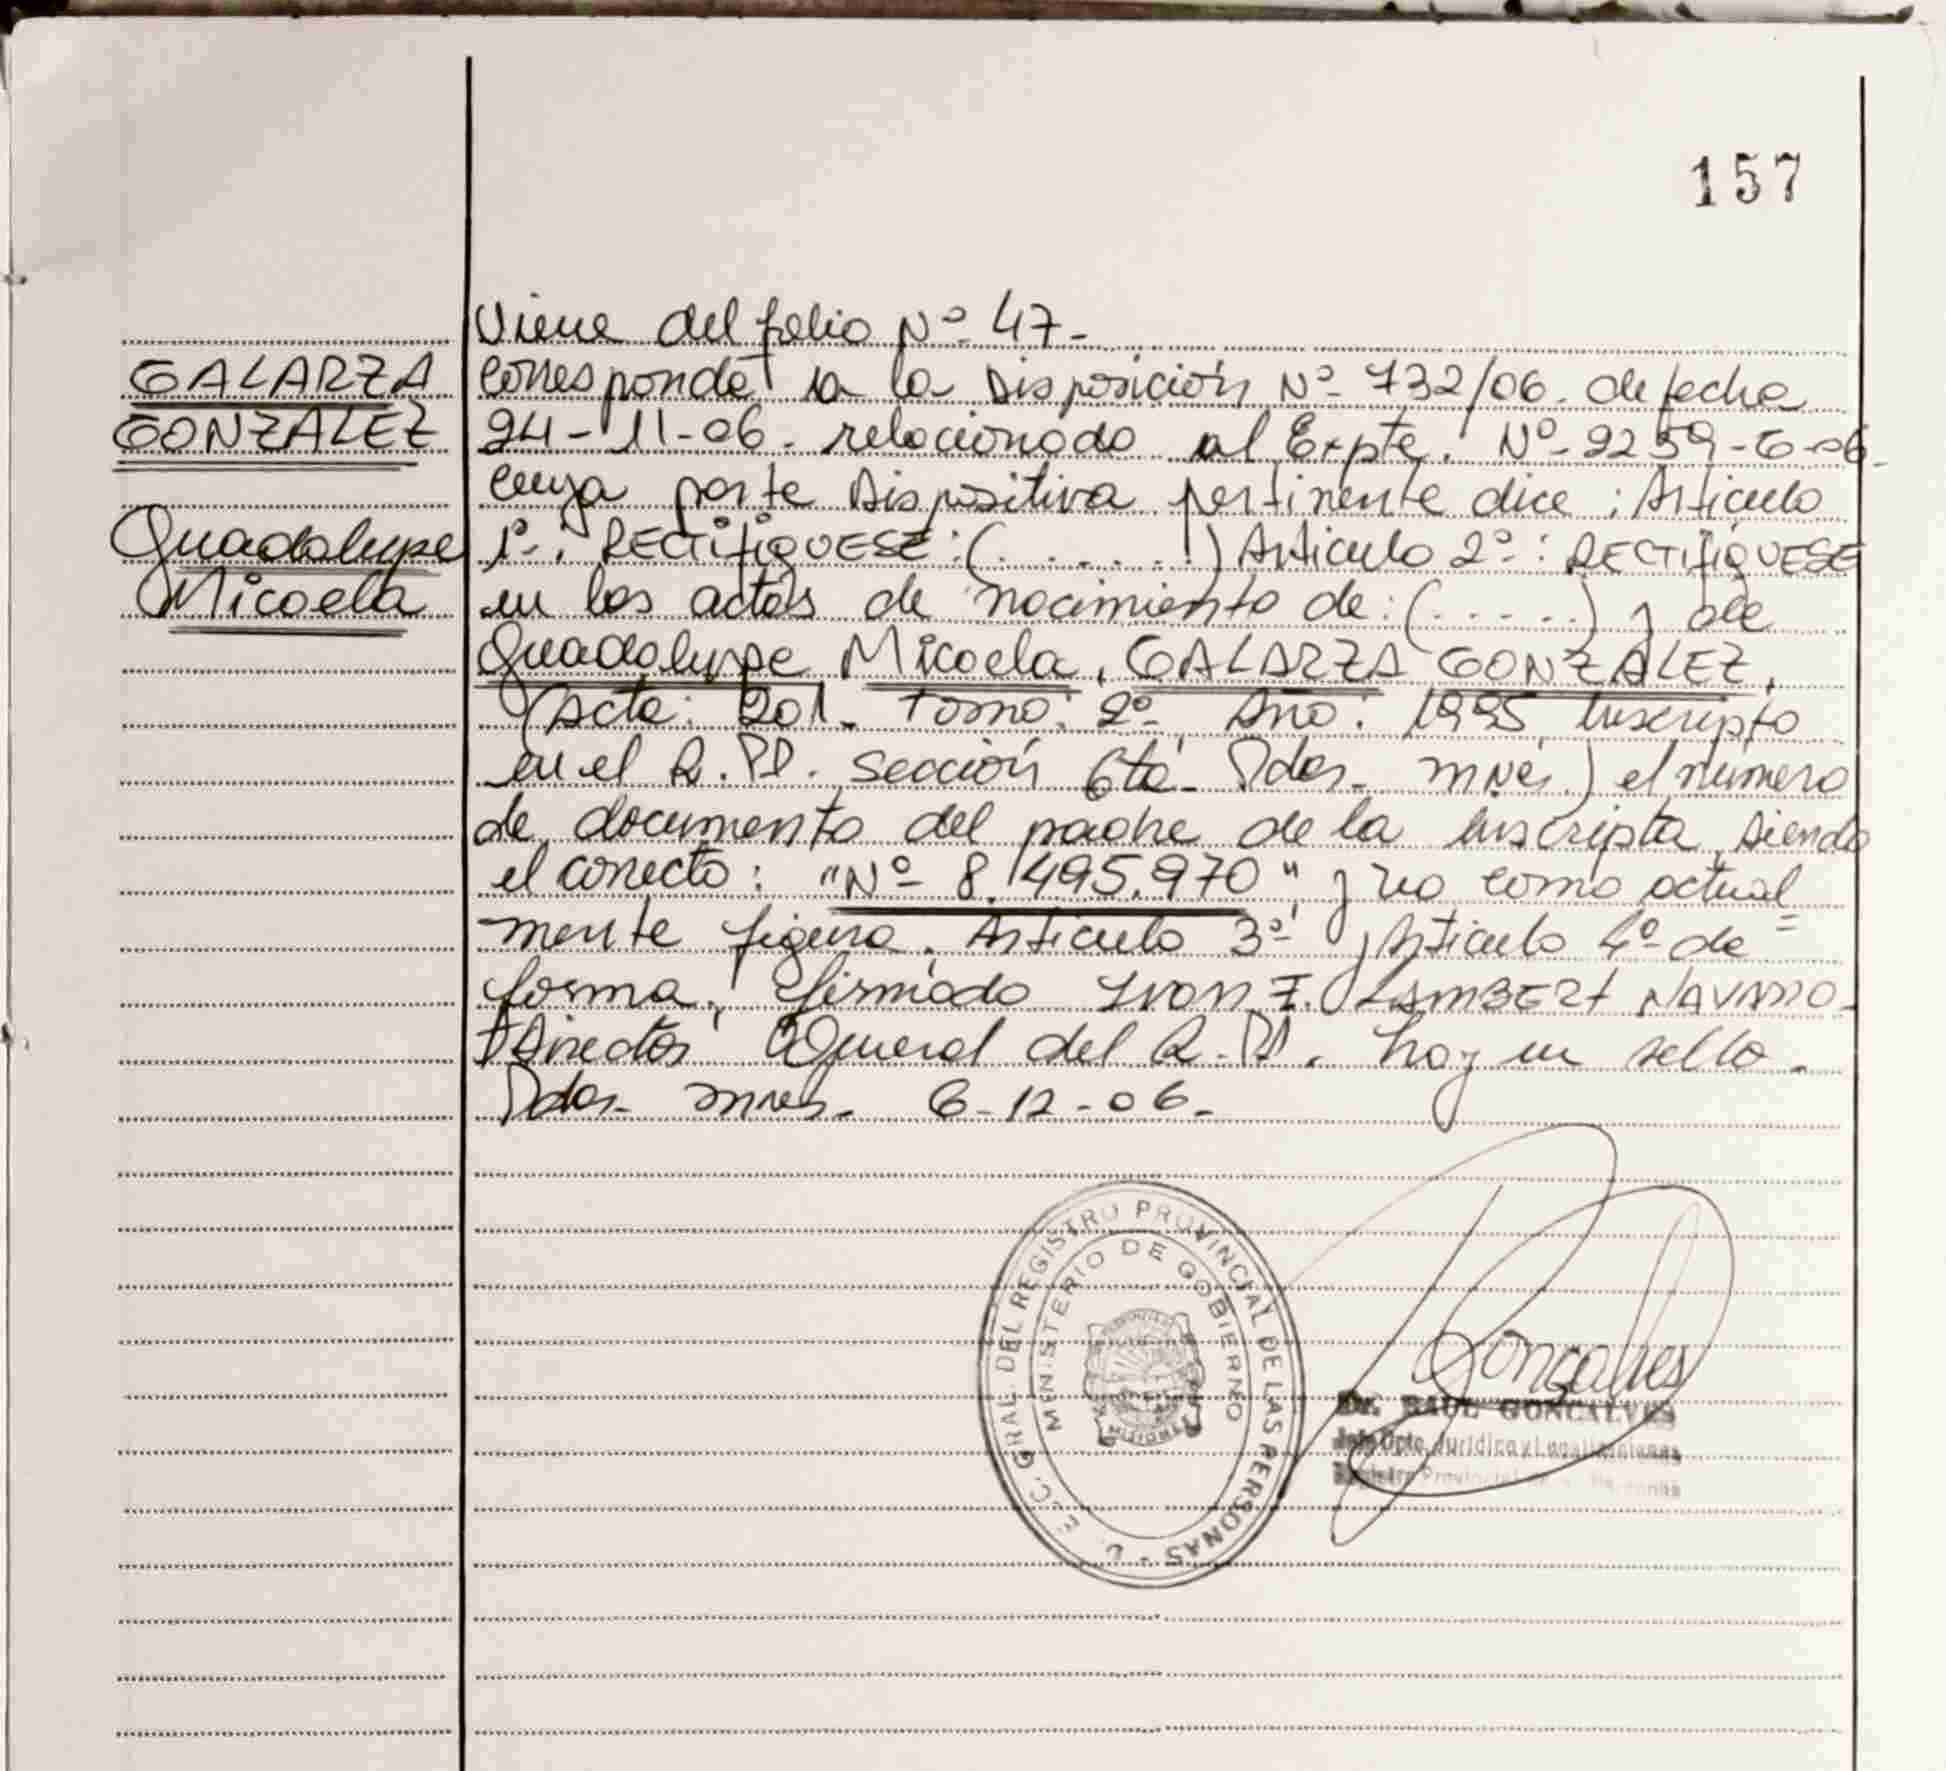 157
Viene del folio Nº 47-
GALARZA
GONZALEZ
Guadalupe
Micaela
Corresponde a la Disposición Nº 732/06. de fecha
24-11-06. relacionado al Expte. Nº 9259-G-06-
cuya parte dispositiva pertinente dice: Articulo
1º-. RECTIFIQUESE: (......) Articulo 2º: RECTIFIQUESE
en las actas de nacimiento de: (.....) y de
Guadalupe Micaela, GALARZA GONZALEZ,
(Acta: 201. Tomo: 2º Año: 1995 Inscripto
en el R.P.P. Sección 6ta- Pdas- Mnes.) el número
de documento del padre de la inscripta, siendo
el correcto: "Nº 8.495.970" y no como actual=
mente figura. Articulo 3º y Articulo 4º de
forma. firmado Ivan E. LAMBERT NAVARRO-
Director General del R.P.P. hay un sello-
Pdas- Mnes- 6-12-06-
GRAL. DEL REGISTRO PROVINCIAL DE LAS PERSONAS
MINISTERIO DE GOBIERNO
MISIONES
Goncalves
Dr. RAUL GONCALVES
Jefe Dpto. Juridico y
Registro Provincial de